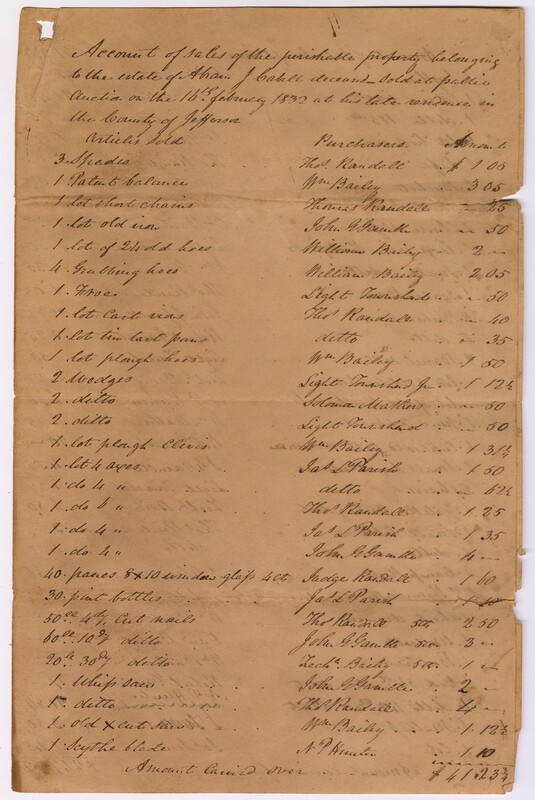 Account of sales of the perishable property belonging
to the estate of Abram J Cabell deceased sold at public
Auction on the 16th february 1832 at his late residence in
the County of Jefferson
Articles sold Purchasers Amount
3. Spades Thos Randall $ 1 00
1 Patent balance Wm Bailey 3 05
1 lot short chains Thomas Randall
1 lot old iron John G Gamble 50
1 lot of 24 old hoes William Baily 2 —
4 Grubbing hoes William Baily 2 05
1. Froes Light Townshend 50
1. lot Cast irons Thos Randall 40
1. lot tin tart pans ditto 35
1. lot plough hoes Wm Bailey 1 50
2 Wedges Light Townshend Jr 1 12½
2. ditto Solomon Mathers 50
2. ditto Light Townshend 50
1. lot plough Clevis Wm Bailey 1 31¼
1. lot 4 axes Jas L Parish 1 50
1. do 4 " ditto 62½
1. do 6 " Thos Randall 1 25
1. do 4 " Jas L Parish 1 35
1. do 4 " John G Gamble 4 —
40. panes 8 x 10 window glass 4cts Judge Randall 1 60
30. pint bottles Jas L Parish 1 10
50 lb 4dy Cut nails Thos Randall 5cts 2 50
60 lb 10dy ditto John G Gamble 5cts 3 —
20 lb 30dy ditto Zechr Baily 5cts 1 —
1. Whip saw John G Gamble 2 —
1. ditto Thos Randall 4 —
1. old X cut saw Wm Bailey 1 12½
1 Scythe blade N P Hunter 1 10
Amount Carried over $ 41.23¾